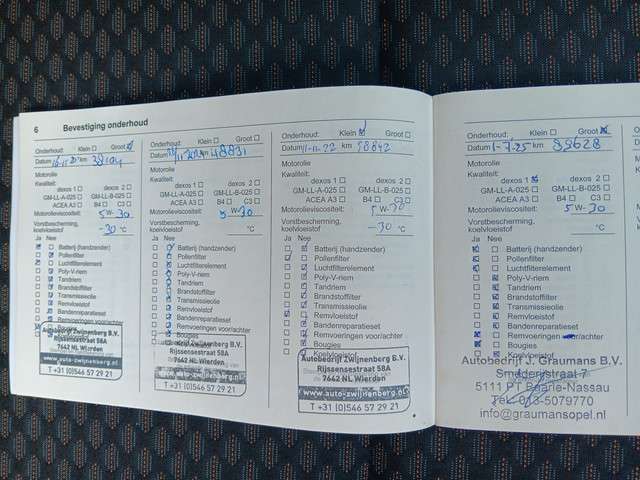 6 Bevestiging onderhoud
Onderhoud: Klein Groot
Datum km
Motorolie
Kwaliteit:
dexos 1 dexos 2
GM-LL-A-025 GM-LL-B-025
ACEA A3 B4 C3
Motorolieviscositeit: 5 W-30
Vorstbescherming, koelvloeistof -30 °C
Ja Nee
Batterij (handzender)
Pollenfilter
Luchtfilterelement
Poly-V-riem
Tandriem
Brandstoffilter
Transmissieolie
Remvloeistof
Bandenreparatieset
Remvoeringen voor/achter
Bougies
Autobedrijf Zwijnenberg B.V.
Rijssensestraat 58A
7642 NL Wierden
www.auto-zwijnenberg.nl
T +31 (0)546 57 29 21
Onderhoud: Klein Groot
Datum km 48831
Motorolie
Kwaliteit:
dexos 1 dexos 2
GM-LL-A-025 GM-LL-B-025
ACEA A3 B4 C3
Motorolieviscositeit: 5 W-30
Vorstbescherming, koelvloeistof -30 °C
Ja Nee
Batterij (handzender)
Pollenfilter
Luchtfilterelement
Poly-V-riem
Tandriem
Brandstoffilter
Transmissieolie
Remvloeistof
Bandenreparatieset
Remvoeringen voor/achter
Bougies
Autobedrijf Zwijnenberg B.V.
Rijssensestraat 58A
7642 NL Wierden
T +31 (0)546 57 29 21
Onderhoud: Klein Groot
Datum 11-11-22 km 58842
Motorolie
Kwaliteit:
dexos 1 dexos 2
GM-LL-A-025 GM-LL-B-025
ACEA A3 B4 C3
Motorolieviscositeit: 5 W-30
Vorstbescherming, koelvloeistof °C
Ja Nee
Batterij (handzender)
Pollenfilter
Luchtfilterelement
Poly-V-riem
Tandriem
Brandstoffilter
Transmissieolie
Remvloeistof
Bandenreparatieset
Remvoeringen voor/achter
Bougies
Koelvloeistof
Autobedrijf Zwijnenberg B.V.
Rijssensestraat 58A
7642 NL Wierden
www.auto-zwijnenberg.nl
T +31 (0)546 57 29 21
Onderhoud: Klein Groot
Datum 1-7-25 km 89628
Motorolie
Kwaliteit:
dexos 1 dexos 2
GM-LL-A-025 GM-LL-B-025
ACEA A3 B4 C3
Motorolieviscositeit: 5 W-30
Vorstbescherming, koelvloeistof -30 °C
Ja Nee
Batterij (handzender)
Pollenfilter
Luchtfilterelement
Poly-V-riem
Tandriem
Brandstoffilter
Transmissieolie
Remvloeistof
Bandenreparatieset
Remvoeringen voor/achter
Bougies
Koelvloeistof
Autobedrijf J. Graumans B.V.
Smederijstraat 7
5111 PT Baarle-Nassau
Tel. 013-5079770
info@graumansopel.nl